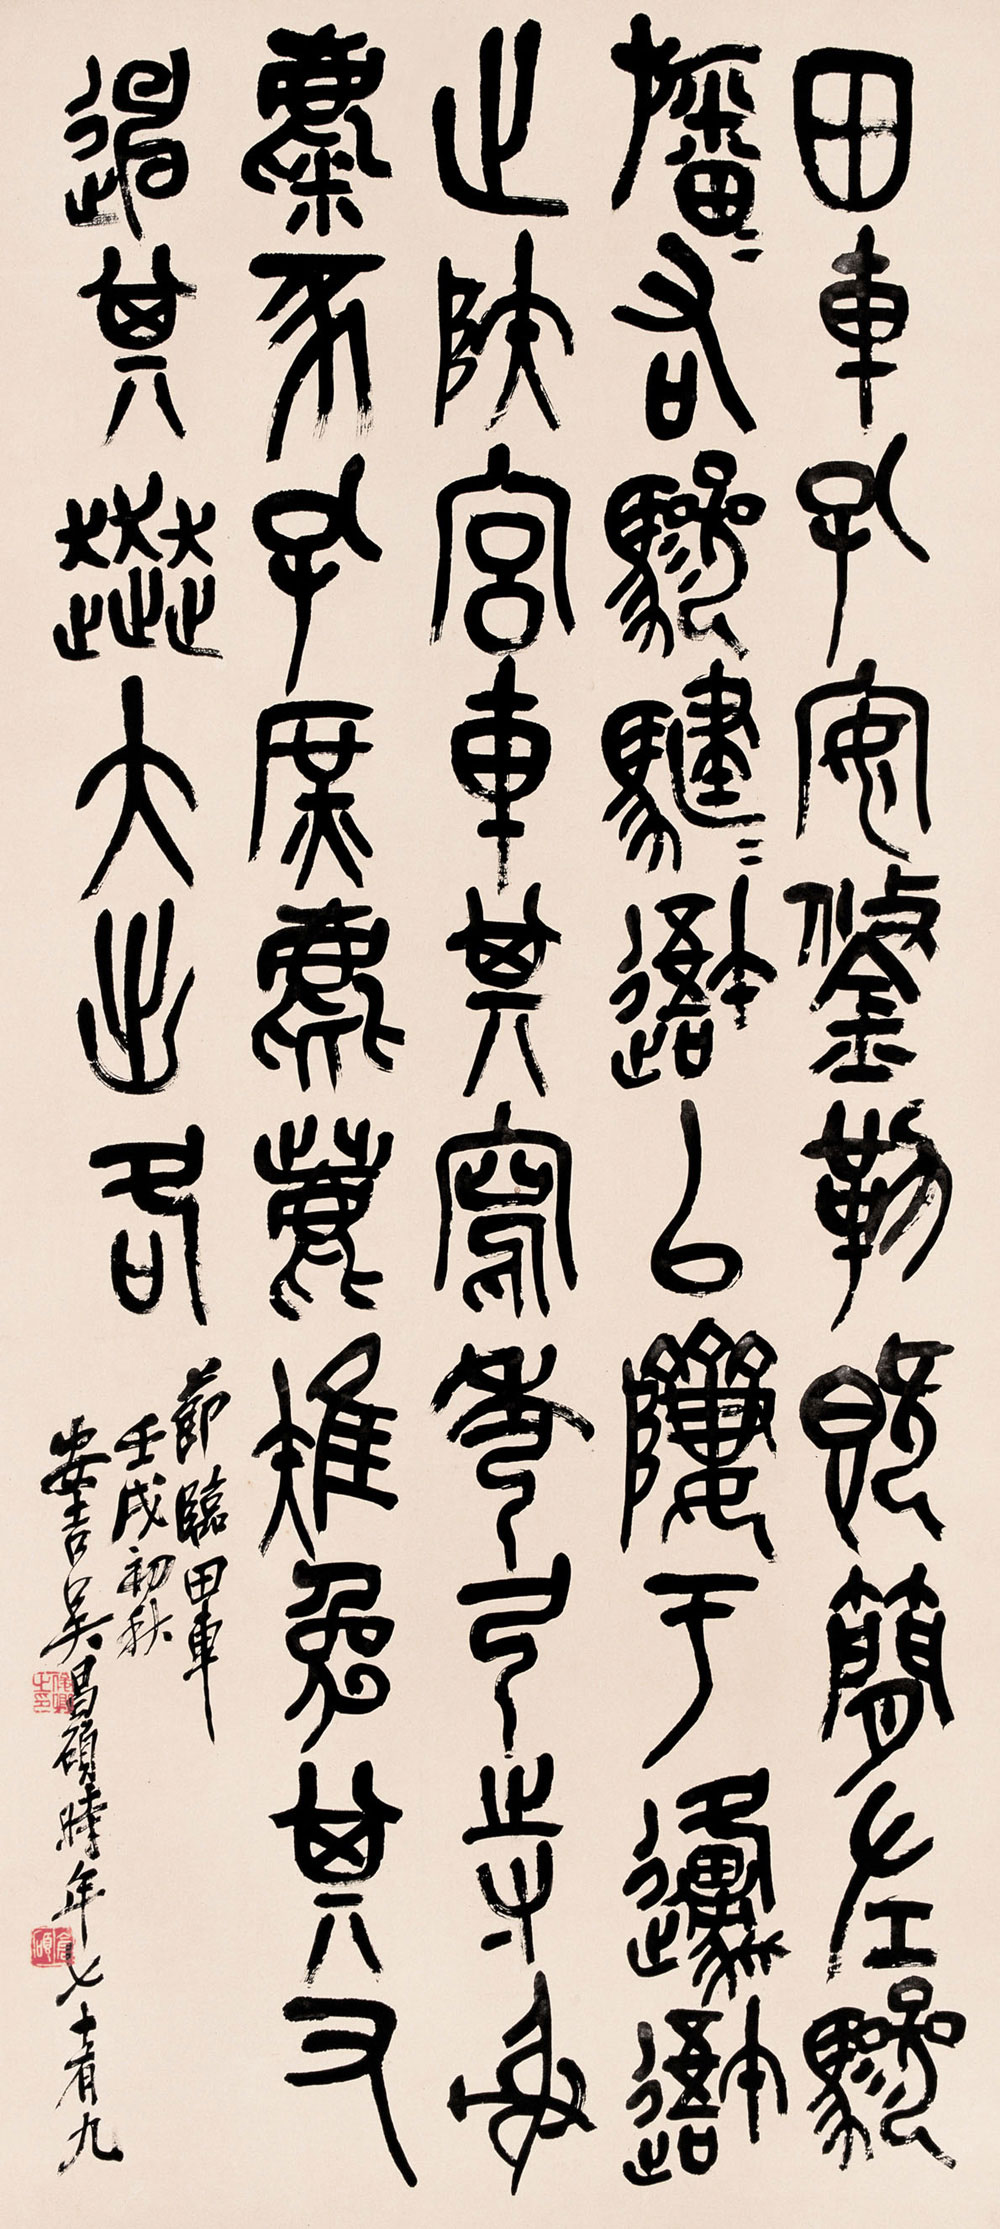 田車孔安鋚勒既簡左驂
旛=右驂騝=䢩以隮于邍䢩
止陝宮車其寫秀弓寺射
麋豕孔庶麀鹿雉兔其又
其奔大出各
節臨田車
壬戌初秋
安吉吳昌碩時年七十有九
俊卿之印
倉碩